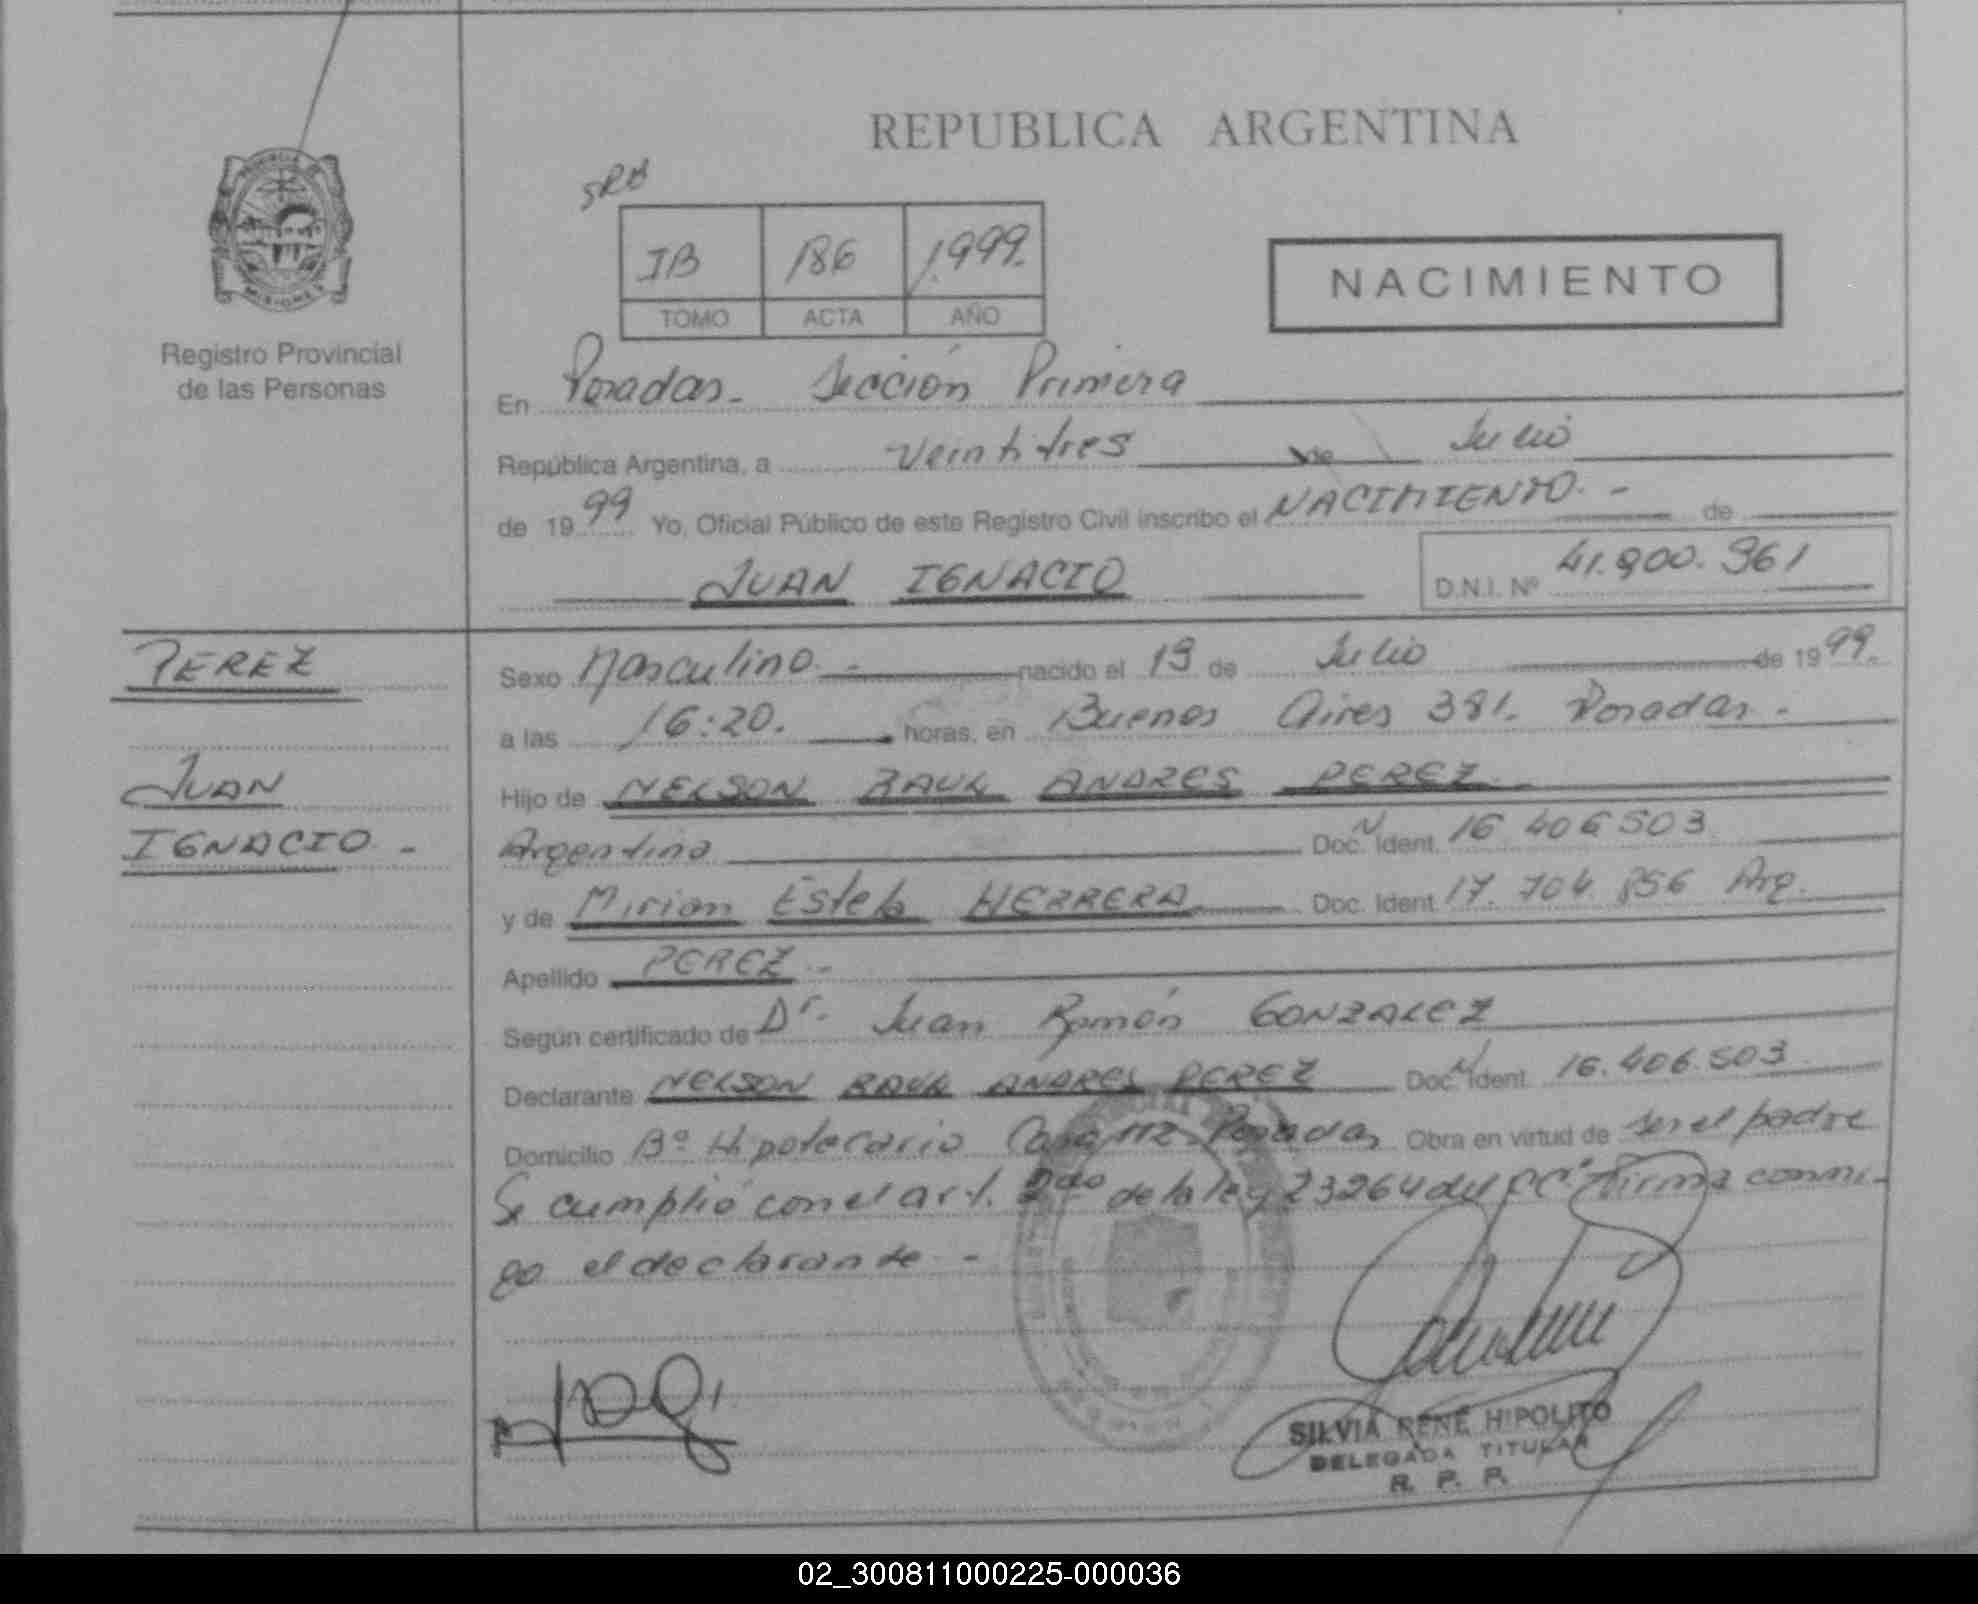 REPUBLICA ARGENTINA
SRH
IB 186 1999.
TOMO ACTA AÑO
NACIMIENTO
MISIONES
Registro Provincial
de las Personas
En Posadas. Sección Primera
República Argentina, a Veintitres de Julio
de 1999 Yo, Oficial Público de este Registro Civil inscribo el NACIMIENTO. - de
JUAN IGNACIO
D.N.I. Nº 41.900.961
PEREZ
JUAN
IGNACIO -
Sexo Masculino. - nacido el 19 de Julio de 1999.
a las 16:20. horas, en Buenos Aires 381. Posadas -
Hijo de NELSON RAUL ANDRES PEREZ
Argentino Doc. Ident. 16 406 503
y de Mirian Estela HERRERA Doc. Ident. 17.704.856 Arg.
Apellido PEREZ -
Según certificado de Dr. Juan Ramón GONZALEZ
Declarante NELSON RAUL ANDRES PEREZ Doc. Ident. 16.406.503
Domicilio Bº Hipotecario Casa 112. Posadas Obra en virtud de ser el padre
Se cumplió con el art. 2do de la ley 23264 del CC. Firma conmi-
go el declarante -
SILVIA RENÉ HIPOLITO
DELEGADA TITULAR
R. P. P.
02_300811000225-000036